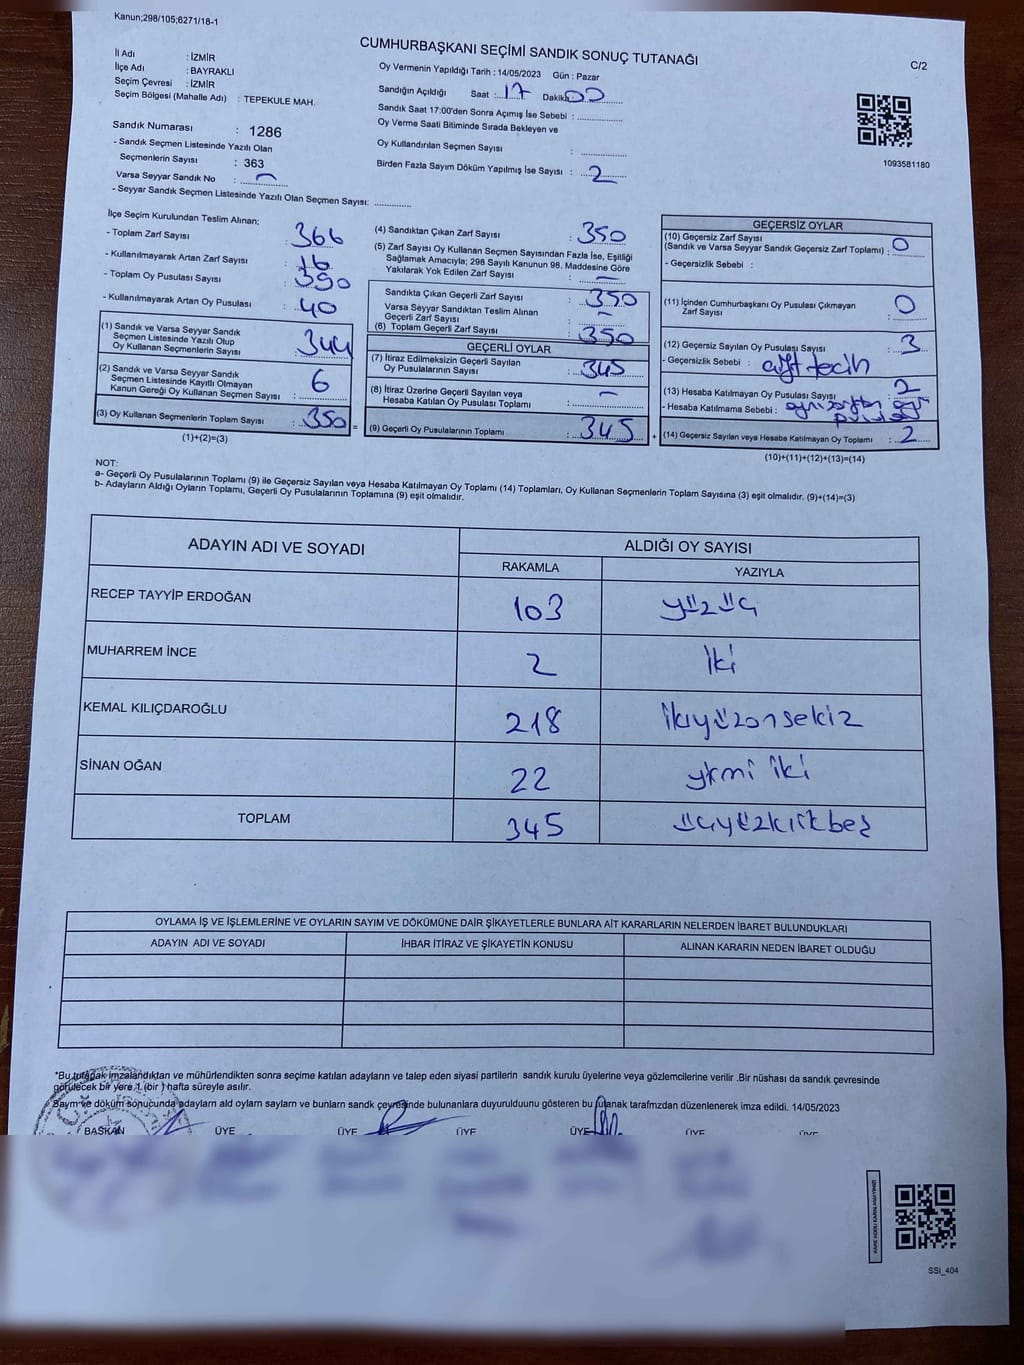 Kanun;298/105;6271/18-1
CUMHURBAŞKANI SEÇİMİ SANDIK SONUÇ TUTANAĞI
C/2
İl Adı : İZMİR
İlçe Adı : BAYRAKLI
Seçim Çevresi : İZMİR
Seçim Bölgesi (Mahalle Adı) : TEPEKULE MAH.
Oy Vermenin Yapıldığı Tarih : 14/05/2023 Gün : Pazar
Sandığın Açıldığı Saat : 17 Dakika 00
Sandık Saat 17:00'den Sonra Açımış İse Sebebi :
Oy Verme Saati Bitiminde Sırada Bekleyen ve
Oy Kullandırılan Seçmen Sayısı :
Birden Fazla Sayım Döküm Yapılmış İse Sayısı : 2
1093581180
Sandık Numarası : 1286
- Sandık Seçmen Listesinde Yazılı Olan
Seçmenlerin Sayısı : 363
Varsa Seyyar Sandık No : -
- Seyyar Sandık Seçmen Listesinde Yazılı Olan Seçmen Sayısı:
İlçe Seçim Kurulundan Teslim Alınan;
- Toplam Zarf Sayısı : 366
- Kullanılmayarak Artan Zarf Sayısı : 16
- Toplam Oy Pusulası Sayısı : 390
- Kullanılmayarak Artan Oy Pusulası : 40
(1) Sandık ve Varsa Seyyar Sandık
Seçmen Listesinde Yazılı Olup
Oy Kullanan Seçmenlerin Sayısı : 344
(2) Sandık ve Varsa Seyyar Sandık
Seçmen Listesinde Kayıtlı Olmayan
Kanun Gereği Oy Kullanan Seçmen Sayısı : 6
(3) Oy Kullanan Seçmenlerin Toplam Sayısı : 350 =
(1)+(2)=(3)
(4) Sandıktan Çıkan Zarf Sayısı : 350
(5) Zarf Sayısı Oy Kullanan Seçmen Sayısından Fazla İse, Eşitliği
Sağlamak Amacıyla; 298 Sayılı Kanunun 98. Maddesine Göre
Yakılarak Yok Edilen Zarf Sayısı : -
Sandıkta Çıkan Geçerli Zarf Sayısı : 350
Varsa Seyyar Sandıktan Teslim Alınan
Geçerli Zarf Sayısı : -
(6) Toplam Geçerli Zarf Sayısı : 350
GEÇERLİ OYLAR
(7) İtiraz Edilmeksizin Geçerli Sayılan
Oy Pusulalarının Sayısı : 345
(8) İtiraz Üzerine Geçerli Sayılan veya
Hesaba Katılan Oy Pusulası Toplamı : -
(9) Geçerli Oy Pusulalarının Toplamı : 345 +
GEÇERSİZ OYLAR
(10) Geçersiz Zarf Sayısı
(Sandık ve Varsa Seyyar Sandık Geçersiz Zarf Toplamı) : 0
- Geçersizlik Sebebi :
(11) İçinden Cumhurbaşkanı Oy Pusulası Çıkmayan
Zarf Sayısı : 0
(12) Geçersiz Sayılan Oy Pusulası Sayısı : 3
- Geçersizlik Sebebi : çift tecih
(13) Hesaba Katılmayan Oy Pusulası Sayısı : 2
- Hesaba Katılmama Sebebi :
(14) Geçersiz Sayılan veya Hesaba Katılmayan Oy Toplamı : 2
(10)+(11)+(12)+(13)=(14)
NOT:
a- Geçerli Oy Pusulalarının Toplamı (9) ile Geçersiz Sayılan veya Hesaba Katılmayan Oy Toplamı (14) Toplamları, Oy Kullanan Seçmenlerin Toplam Sayısına (3) eşit olmalıdır. (9)+(14)=(3)
b- Adayların Aldığı Oyların Toplamı, Geçerli Oy Pusulalarının Toplamına (9) eşit olmalıdır.
ADAYIN ADI VE SOYADI ALDIĞI OY SAYISI
RAKAMLA YAZIYLA
RECEP TAYYİP ERDOĞAN 103 yüzüç
MUHARREM İNCE 2 iki
KEMAL KILIÇDAROĞLU 218 ikiyüzonsekiz
SİNAN OĞAN 22 yirmi iki
TOPLAM 345 üçyüzkırkbeş
OYLAMA İŞ VE İŞLEMLERİNE VE OYLARIN SAYIM VE DÖKÜMÜNE DAİR ŞİKAYETLERLE BUNLARA AİT KARARLARIN NELERDEN İBARET BULUNDUKLARI
ADAYIN ADI VE SOYADI İHBAR İTİRAZ VE ŞİKAYETİN KONUSU ALINAN KARARIN NEDEN İBARET OLDUĞU
*Bu tutanak imzalandıktan ve mühürlendikten sonra seçime katılan adayların ve talep eden siyasi partilerin sandık kurulu üyelerine veya gözlemcilerine verilir .Bir nüshası da sandık çevresinde
görülecek bir yere 1 (bir ) hafta süreyle asılır.
Sayım ve döküm sonucunda adayların ald oyların sayları ve bunların sandık çevresinde bulunanlara duyurulduunu gösteren bu tutanak tarafmzdan düzenlenerek imza edildi. 14/05/2023
BAŞKAN ÜYE ÜYE ÜYE ÜYE ÜYE ÜYE
KARE KODU KARALAMAYINIZ!
SSI_404